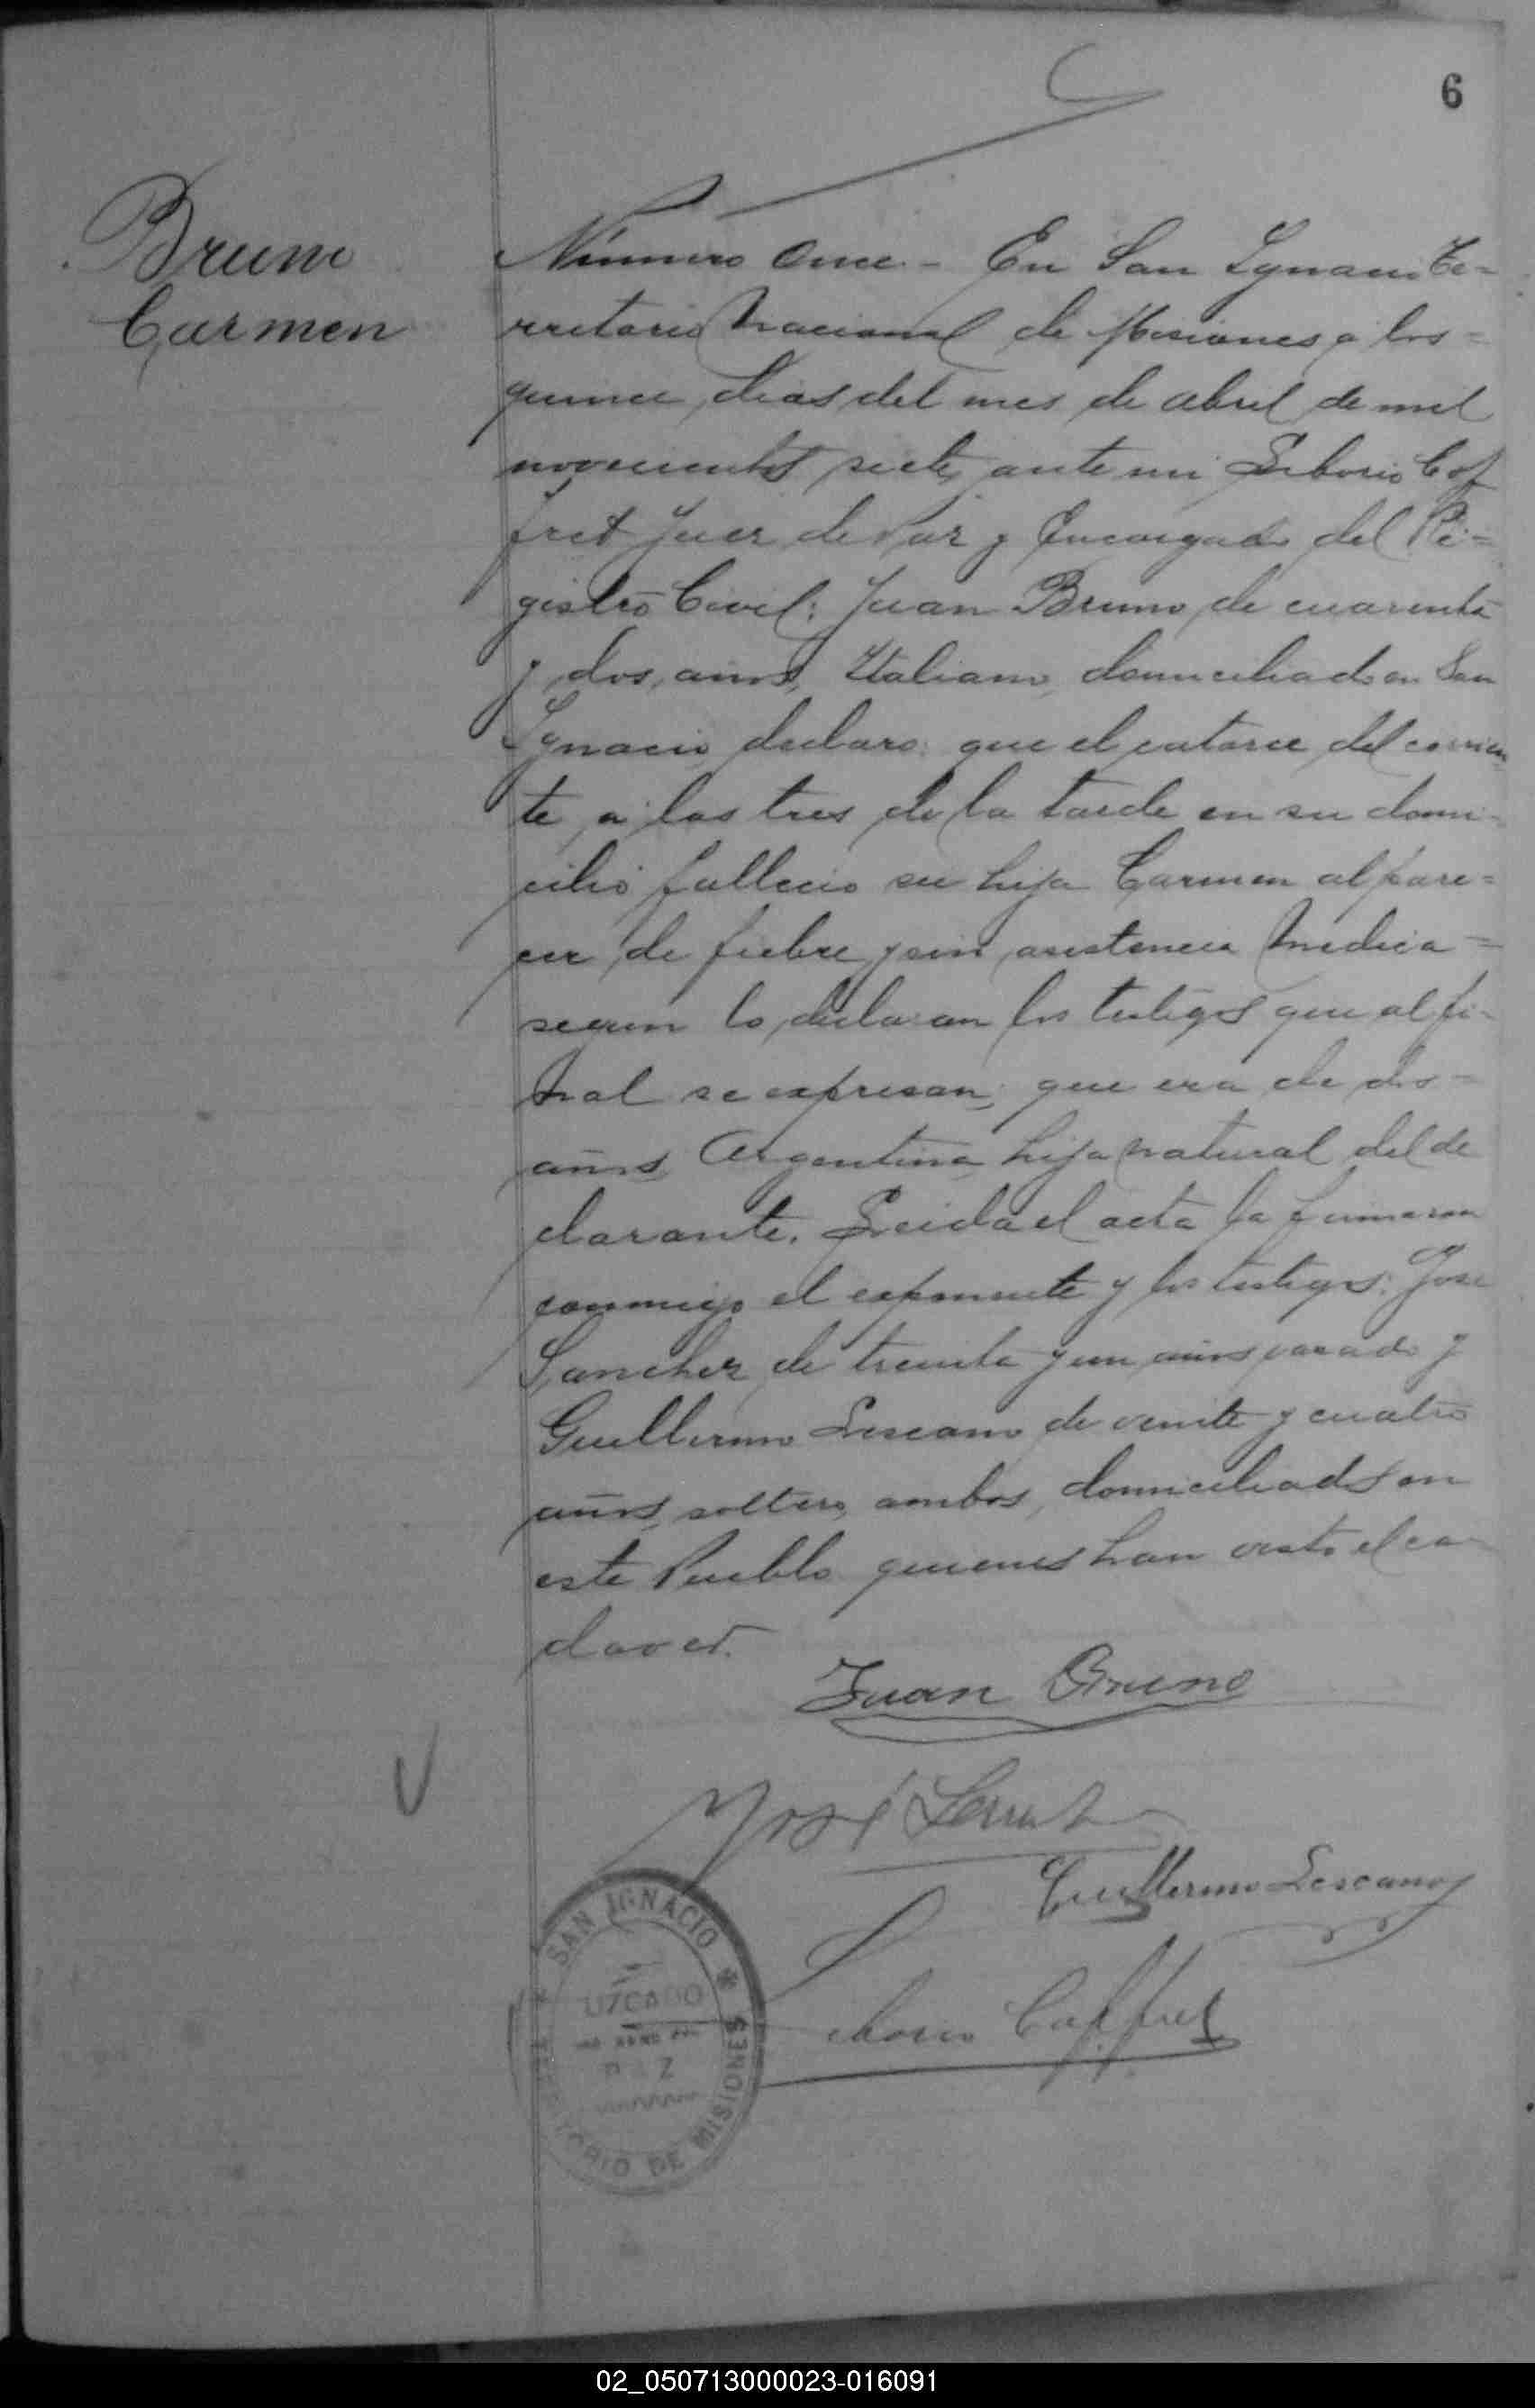 6
Bruno
Carmen
Número Once - En San Ignacio Te=
rritorio Nacional de Misiones a los=
quince dias del mes de abril de mil
novecientos siete, ante mi Liborio Cof
fret Juez de Paz y Encargado del Re=
gistro Civil: Juan Bruno de cuarenta
y dos, años, Italiano, domiciliado en San
Ignacio declaro: que el catorce del corrien=
te a las tres de la tarde en su domi-
cilio fallecio su hija Carmen al pare=
cer de fiebre y sin asistencia medica=
segun lo declaran los testigos que al fi-
nal se expresan, que era de dos=
años, Argentina, hija natural del de
clarante. Leida el acta la firmaron
conmigo el exponente y los testigos: Jose
Sanchez de treinta y un años casado y
Guillermo Lescano de veinte y cuatro
años, soltero, ambos, domiciliados en
este Pueblo quienes han visto el ca-
daver.
Juan Bruno
José
Guillermo Lescano
Liborio Coffret
SAN IGNACIO *
JUZGADO
DE
PAZ
TERRITORIO DE MISIONES
02_050713000023-016091